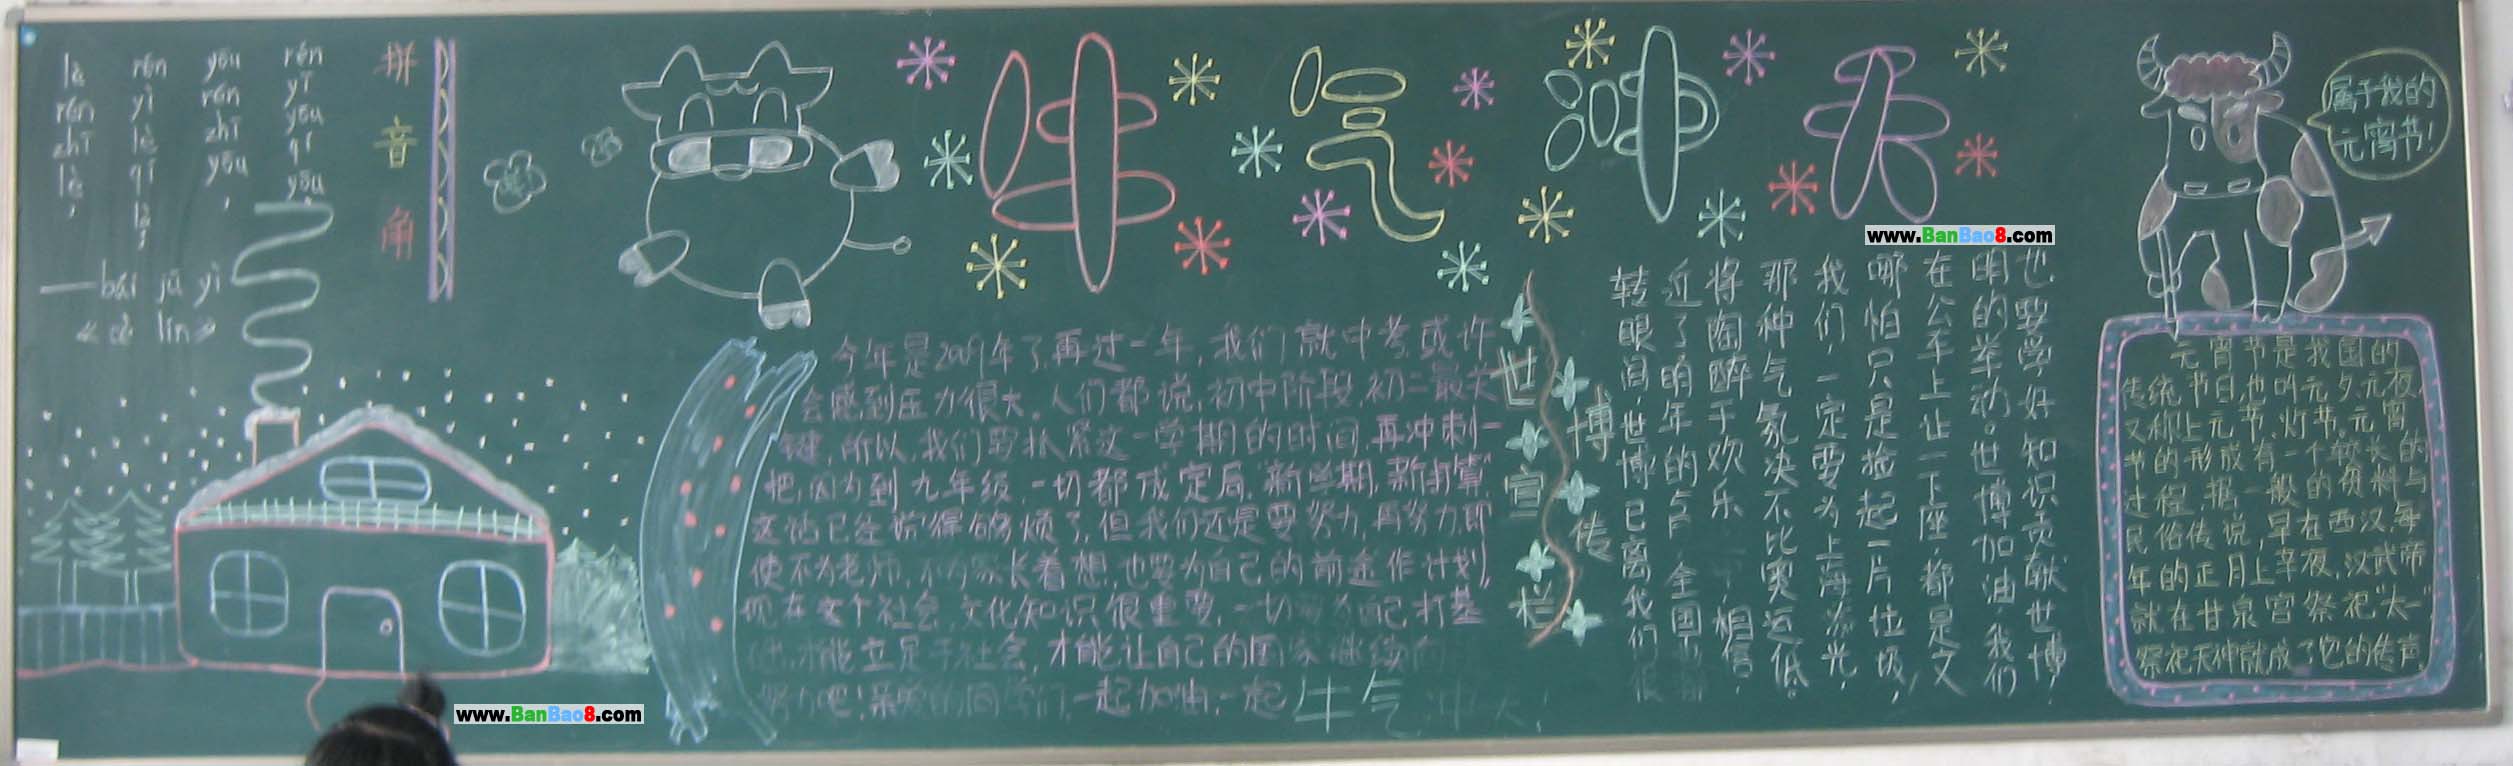 拼音角
rén yī yōu qí yōu
yōu rén zhī yōu,
rén yì lè qí lè;
lè rén zhī lè,
——bái jū yì
《cè lín》
牛气冲天
www.BanBao8.com
属于我的
元宵节!
今年是2009年了,再过一年,我们就中考,或许
会感到压力很大。人们都说,初中阶段,初二最关
键,所以,我们要抓紧这一学期的时间,再冲刺一
把,因为到九年级,一切都成定局,“新学期,新打算”
这话已经听得够烦了,但我们还是要努力,再努力,即
使不为老师,不为家长着想,也要为自己的前途作计划。
现在这个社会,文化知识很重要,一切要为自己打基
才能立足于社会,才能让自己的国家继续向
努力吧!亲爱的同学们,一起加油,一起牛气冲天!
世博宣传栏
转眼间,世博已离我们很
近了,明年的 全国
将陶醉于欢乐 相信,
那种气氛决不比奥运低。
我们,一定要为上海添光,
哪怕只是捡起一片垃圾,
在公车上让一下座,都是文
明的举动。世博加油,我们
也要学好知识贡献世博!
元宵节是我国的
传统节日,也叫元夕、元夜,
又称上元节、灯节。元宵
节的形成有一个较长的
过程,据一般的资料与
民俗传说,早在西汉,每
年的正月上辛夜,汉武帝
就在甘泉宫祭祀“太一”
祭祀天神就成了它的传声
www.BanBao8.com